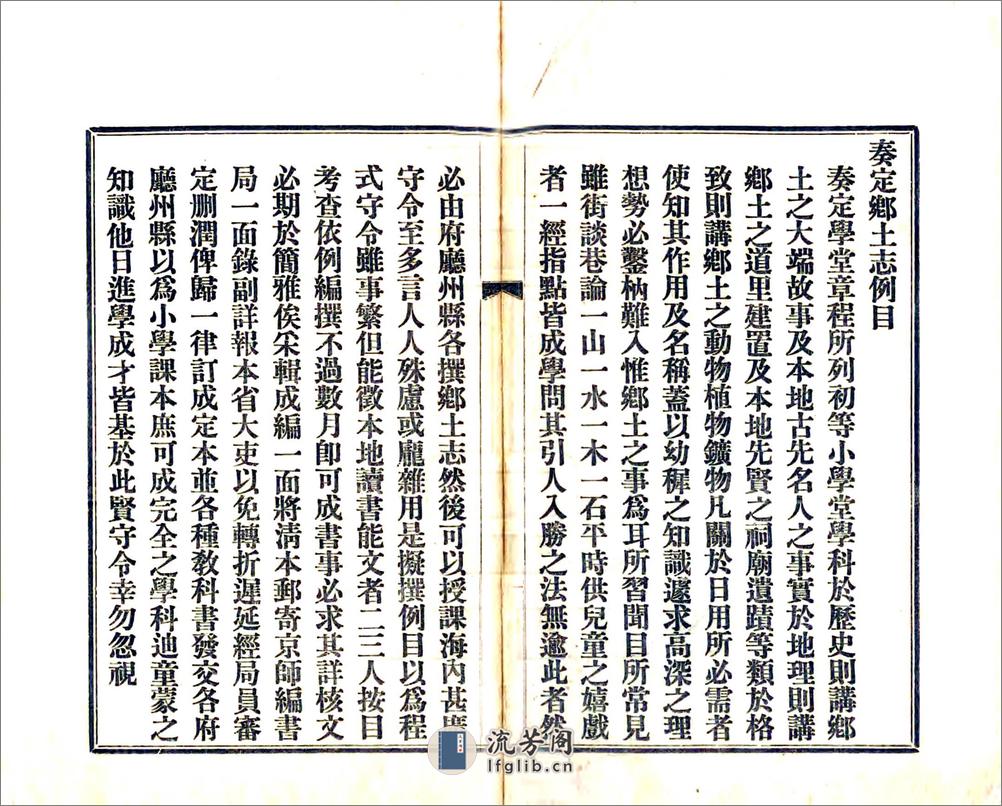 奏定鄉土志例目
奏定學堂章程所列初等小學堂學科於歷史則講鄉
土之大端故事及本地古先名人之事實於地理則講
鄉土之道里建置及本地先賢之祠廟遺蹟等類於格
致則講鄉土之動物植物鑛物凡關於日用所必需者
使知其作用及名稱蓋以幼穉之知識遽求高深之理
想勢必鑿枘難入惟鄉土之事爲耳所習聞目所常見
雖街談巷論一山一水一木一石平時供兒童之嬉戲
者一經指點皆成學問其引人入勝之法無逾此者然
必由府廳州縣各撰鄉土志然後可以授課海內甚廣
守令至多言人人殊慮或龐雜用是擬撰例目以爲程
式守令雖事繁但能徵本地讀書能文者二三人按目
考查依例編撰不過數月卽可成書事必求其詳核文
必期於簡雅俟采輯成編一面將淸本郵寄京師編書
局一面錄副詳報本省大吏以免轉折遲延經局員審
定刪潤俾歸一律訂成定本並各種敎科書發交各府
廳州縣以爲小學課本庶可成完全之學科迪童蒙之
知識他日進學成才皆基於此賢守令幸勿忽視
流芳閣
lfglib.cn